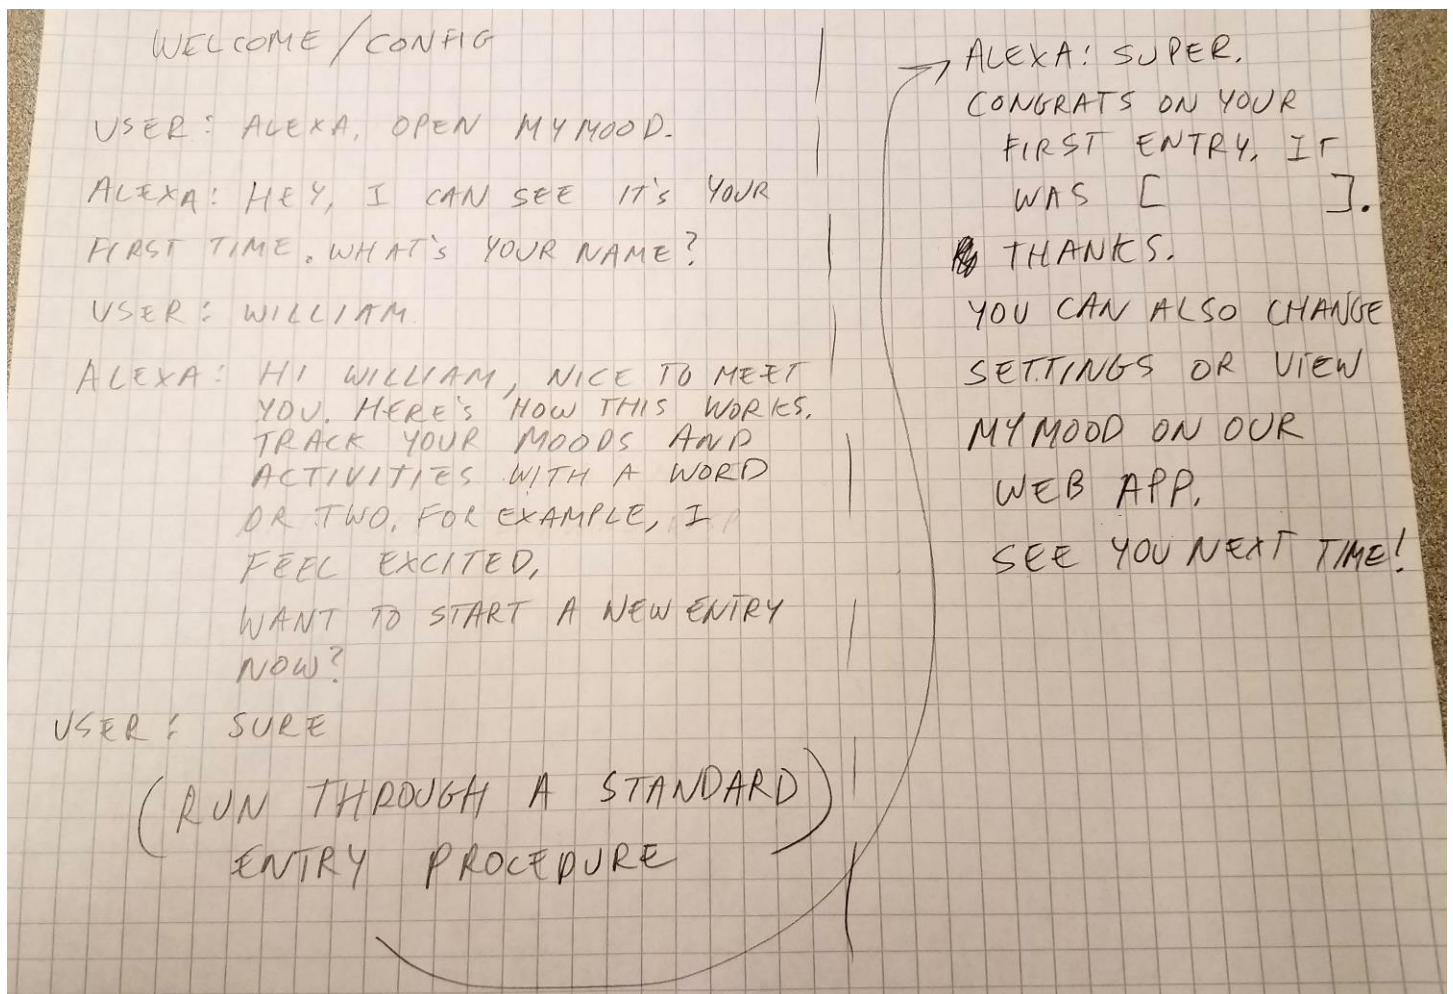 WELCOME/CONFIG
USER: ALEXA, OPEN MY MOOD.
ALEXA: HEY, I CAN SEE IT'S YOUR
FIRST TIME. WHAT'S YOUR NAME?
USER: WILLIAM
ALEXA: HI WILLIAM, NICE TO MEET
YOU. HERE'S HOW THIS WORKS.
TRACK YOUR MOODS AND
ACTIVITIES WITH A WORD
OR TWO. FOR EXAMPLE, I
FEEL EXCITED,
WANT TO START A NEW ENTRY
NOW?
USER: SURE
(RUN THROUGH A STANDARD
ENTRY PROCEDURE)
ALEXA: SUPER.
CONGRATS ON YOUR
FIRST ENTRY. IT
WAS [ ].
THANKS.
YOU CAN ALSO CHANGE
SETTINGS OR VIEW
MY MOOD ON OUR
WEB APP.
SEE YOU NEXT TIME!